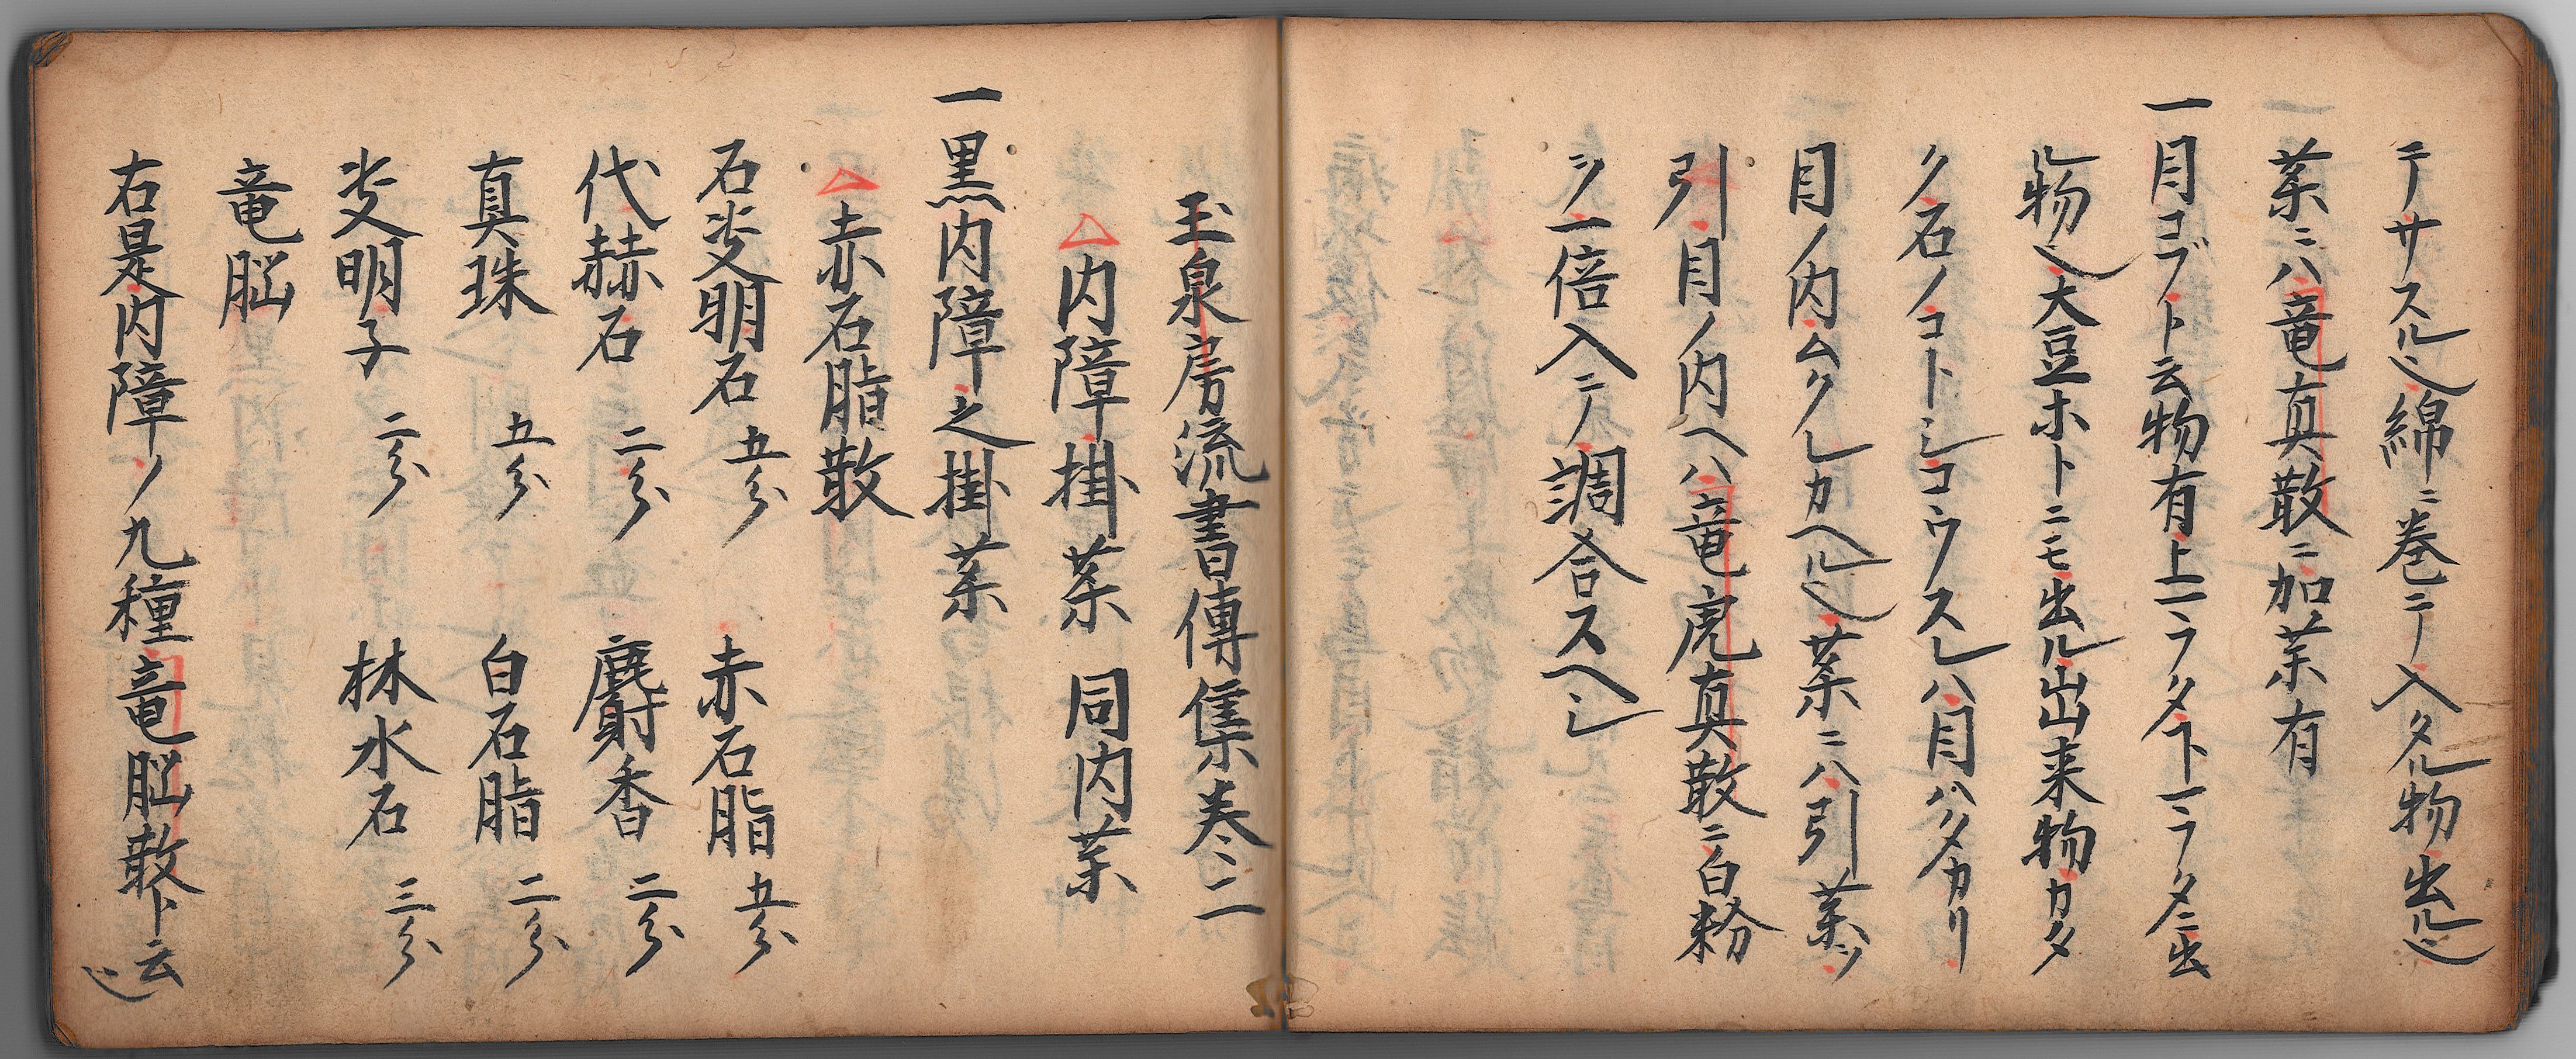 テサスル也綿ニ巻テ入タル物出ル也
茱ニハ竜真散ニ加茱有
一目コブト云物有上マフタ下マフタニ出
ル物也大豆ホトニモ出ル出来物カタ
ク石ノコトシコウスレハ目ハタカリ
目ノ内ムクレカヘル也茱ニハ引茱ツ
引目ノ内ヘハ竜虎真散ニ白粉
ツ一倍入テ調合スヘシ
玉泉房流書傳集巻二
△内障掛茱 同内茱
一黒内障之掛茱
△赤石脂散
石决明石 五分 赤石脂 五分
代赫石 二分 麝香 二分
真珠 五分 白石脂 二分
决明子 二分 林水石 三分
竜脳
右是内障ノ九種竜脳散ト云也